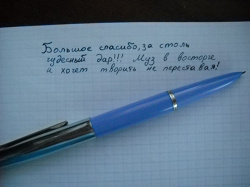 Большое спасибо, за столь
чудесный дар!!! Муз в восторге
и хочет творить не переставая!